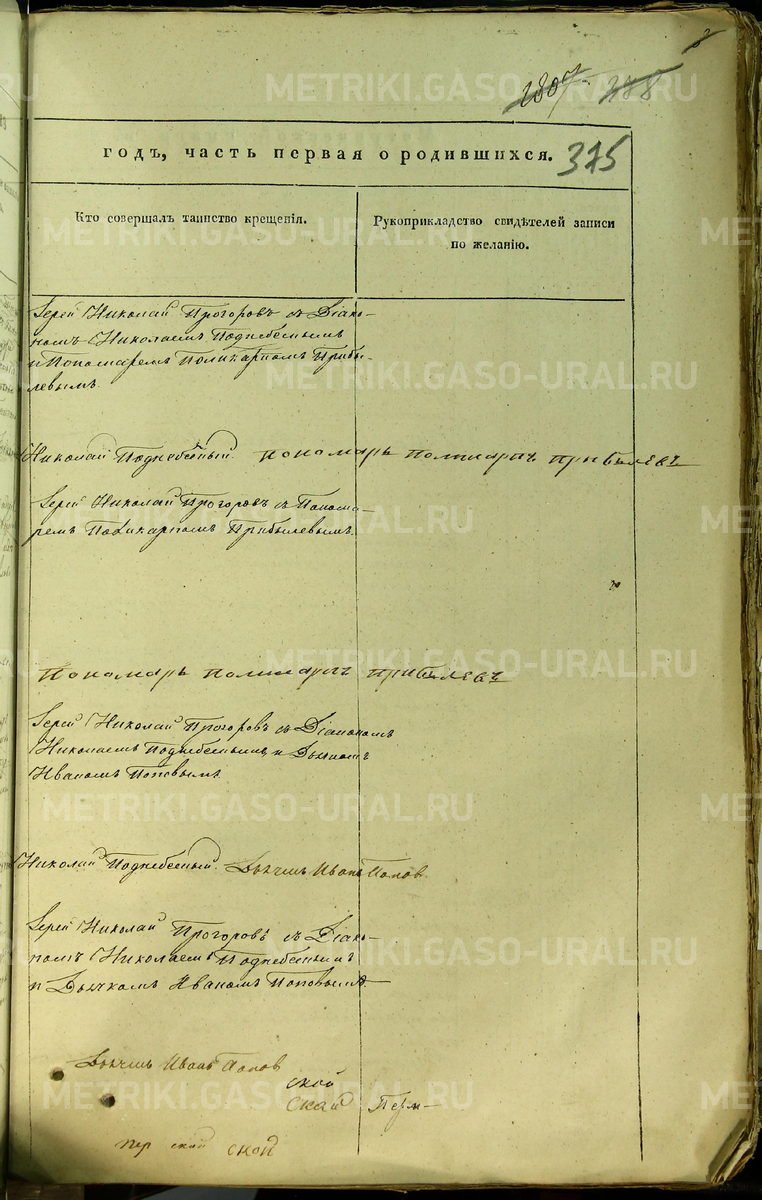 1807 188
METRIKI.GASO-URAL.RU
годъ, часть первая о родившихся. 375
Кто совершалъ таинство крещенія.
Рукоприкладство свидѣтелей записи
по желанію.
Іерей Николай Прогоровъ съ Діако-
номъ Николаемъ Поднебеснымъ
и Пономаремъ Поликарпомъ Прибы-
левымъ.
Николай Поднебесный. пономарь поликарпъ прибылевъ
Іерей Николай Прогоровъ съ Понома-
ремъ Поликарпомъ Прибылевымъ.
Пономарь поликарпъ прибылевъ
Іерей Николай Прогоровъ съ Діакономъ
Николаемъ Поднебеснымъ и Дьячкомъ
Иваномъ Поповымъ.
Николай Поднебесный. Дьячекъ Иванъ Попов
Іерей Николай Прогоровъ съ Діако-
номъ Николаемъ Поднебеснымъ
и Дьячкомъ Иваномъ Поповымъ
Дьячекъ Иванъ Попов
ской
скай Перм-
пер ской ской